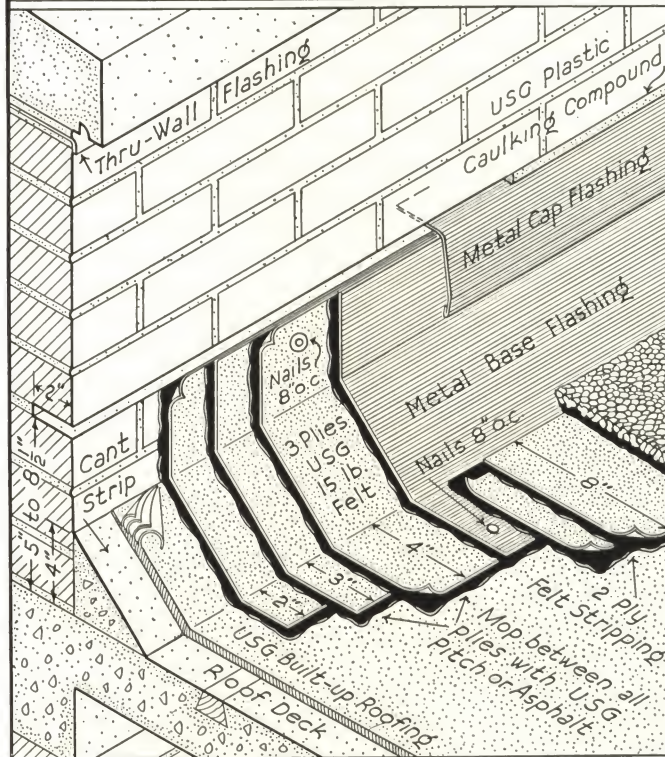 Thru-Wall Flashing
USG Plastic
Caulking Compound
Metal Cap Flashing
Metal Base Flashing
Nails
8" o.c.
Nails 8" o.c.
3 Plies
USG
15 lb.
Felt
2"
Cant
Strip
5" to 8 1/2"
4"
8"
4"
3"
2"
2 Ply
Felt Stripping
Mop between all
plies with USG
Pitch or Asphalt
USG Built-up Roofing
Roof Deck